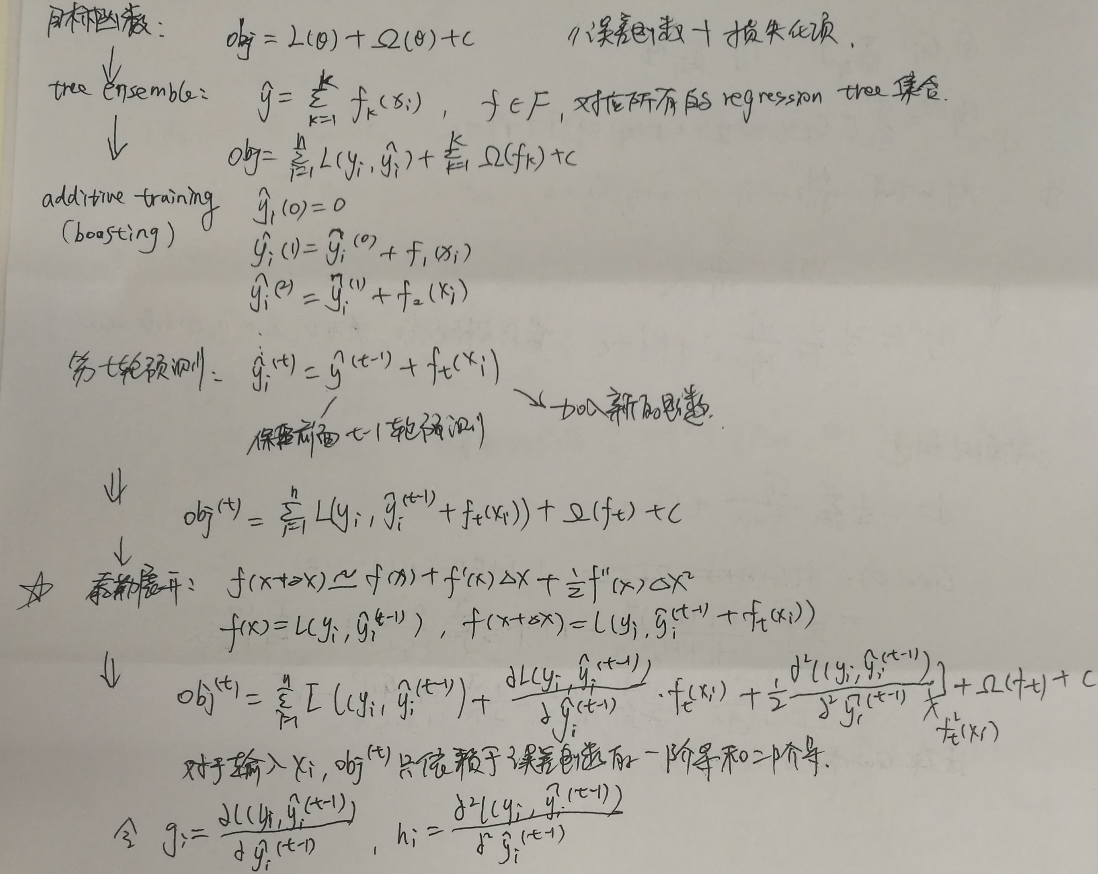 目标函数： obj = L(θ) + Ω(θ) + C //误差函数 + 损失化项.
↓
tree ensemble: ŷ = Σ_{k=1}^{K} f_k(x_i), f ∈ F, 对应所有的 regression tree 集合.
↓ obj = Σ_{i=1}^{n} L(y_i, ŷ_i) + Σ_{k=1}^{K} Ω(f_k) + C
additive training ŷ_i(0) = 0
(boosting) ŷ_i(1) = ŷ_i^{(0)} + f_1(x_i)
ŷ_i^{(2)} = ŷ_i^{(1)} + f_2(x_i)
⋮
第t轮预测： ŷ_i^{(t)} = ŷ^{(t-1)} + f_t(x_i)
→ 加入新的函数.
保留前面 t-1 轮预测
⇓
obj^{(t)} = Σ_{i=1}^{n} L(y_i, ŷ_i^{(t-1)} + f_t(x_i)) + Ω(f_t) + C
↓
☆ 泰勒展开： f(x+Δx) ≃ f(x) + f'(x)Δx + ½f''(x)Δx²
f(x) = L(y_i, ŷ_i^{(t-1)}), f(x+Δx) = L(y_i, ŷ_i^{(t-1)} + f_t(x_i))
⇓
obj^{(t)} = Σ_{i=1}^{n} [L(y_i, ŷ_i^{(t-1)}) + ∂L(y_i, ŷ_i^{(t-1)})/∂ŷ_i^{(t-1)} · f_t(x_i) + ½ ∂²L(y_i, ŷ_i^{(t-1)})/∂²ŷ_i^{(t-1)} f_t²(x_i)] + Ω(f_t) + C
对于输入 x_i, obj^{(t)} 只依赖于误差函数的一阶导和二阶导.
令 g_i = ∂L(y_i, ŷ_i^{(t-1)})/∂ŷ_i^{(t-1)}, h_i = ∂²L(y_i, ŷ_i^{(t-1)})/∂²ŷ_i^{(t-1)}